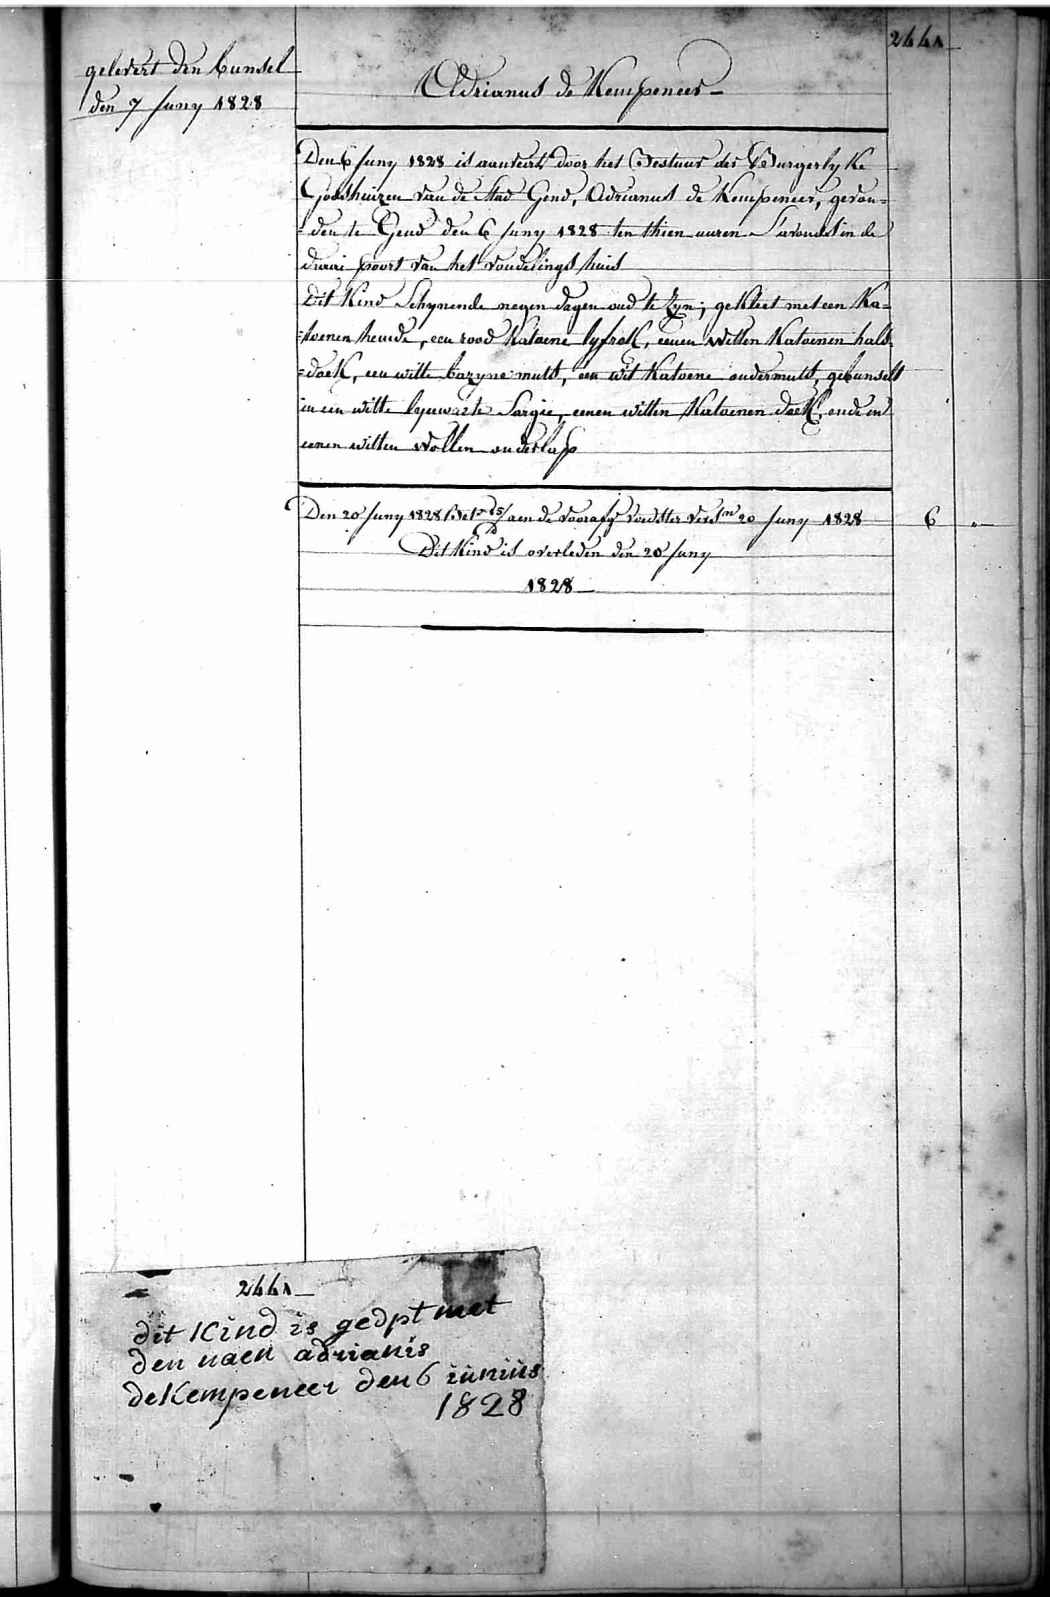 2441
gelevert den bunsel
den 7 Juny 1828
Adrianus de Kempeneer
Den 6 Juny 1828 is aanveird door het Bestuur der Burgerlyke
Godshuizen van de Stad Gend, Adrianus de Kempeneer, gevon=
=den te Gend den 6 Juny 1828 ten thien uuren S'avonds in de
draai poort van het vondelings huis
Dit Kind Schynende negen dagen oud te Zyn; gekleet met een Ka=
=toenen hemde, een rood Katoene lyfrok, eenen witten Katoenen hals=
=doek, een witte bazyne muts, een wit Katoene ondermuts, gebunselt
in een witte Sargie, eenen witten Katoenen doek, ende in
eenen witten Wollen onderlap
Den 20 Juny 1828 aen de voedster 20 Juny 1828 6 "
Dit Kind is overleden den 20 Juny
1828
2441
dit Kind is gedpt met
den naen adrianis
deKempeneer den 6 iunius
1828